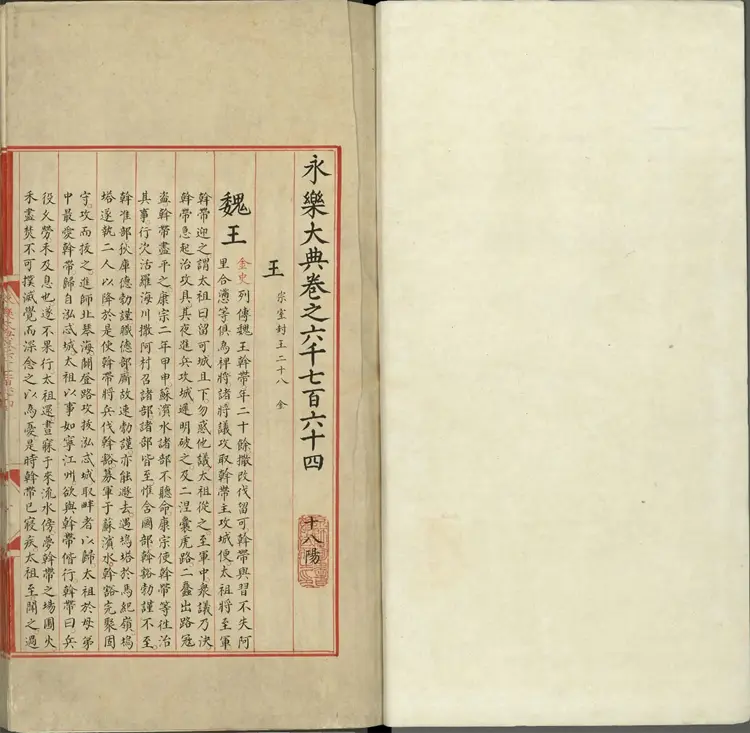 永樂大典卷之六千七百六十四 十八陽
王 宗室封王二十八 金
魏王 金史列傳魏王斡帶年二十餘撒改伐留可斡帶與習不失阿
里合懣等俱爲裨將諸將議攻取斡帶主攻城便太祖將至軍
斡帶迎之謂太祖曰留可城且下勿惑他議太祖從之至軍中衆議乃決
斡帶急起治攻具其夜進兵攻城遲明破之及二涅囊虎路二蠢出路寇
盗斡帶盡平之康宗二年甲申蘇濱水諸部不聽命康宗使斡帶等往治
其事行次活羅海川撒阿村召諸部諸部皆至惟含國部斡豁勃謹不至
斡准部狄庫德勃謹職德部厮故速勃謹亦能遁去遇塢塔於馬紀嶺塢
塔遂執二人以降於是使斡帶將兵伐斡豁募軍于蘇濱水斡豁完聚固
守攻而拔之進師北琴海闢登路攻拔泓忒城取畔者以歸太祖於母弟
中最愛斡帶歸自泓忒城太祖以事如寧江州欲與斡帶偕行斡帶曰兵
役久勞未及息也遂不果行太祖還晝寐于來流水傍夢斡帶之場圃火
禾盡焚不可撲滅覺而深念之以爲憂是時斡帶已寢疾太祖至聞之過